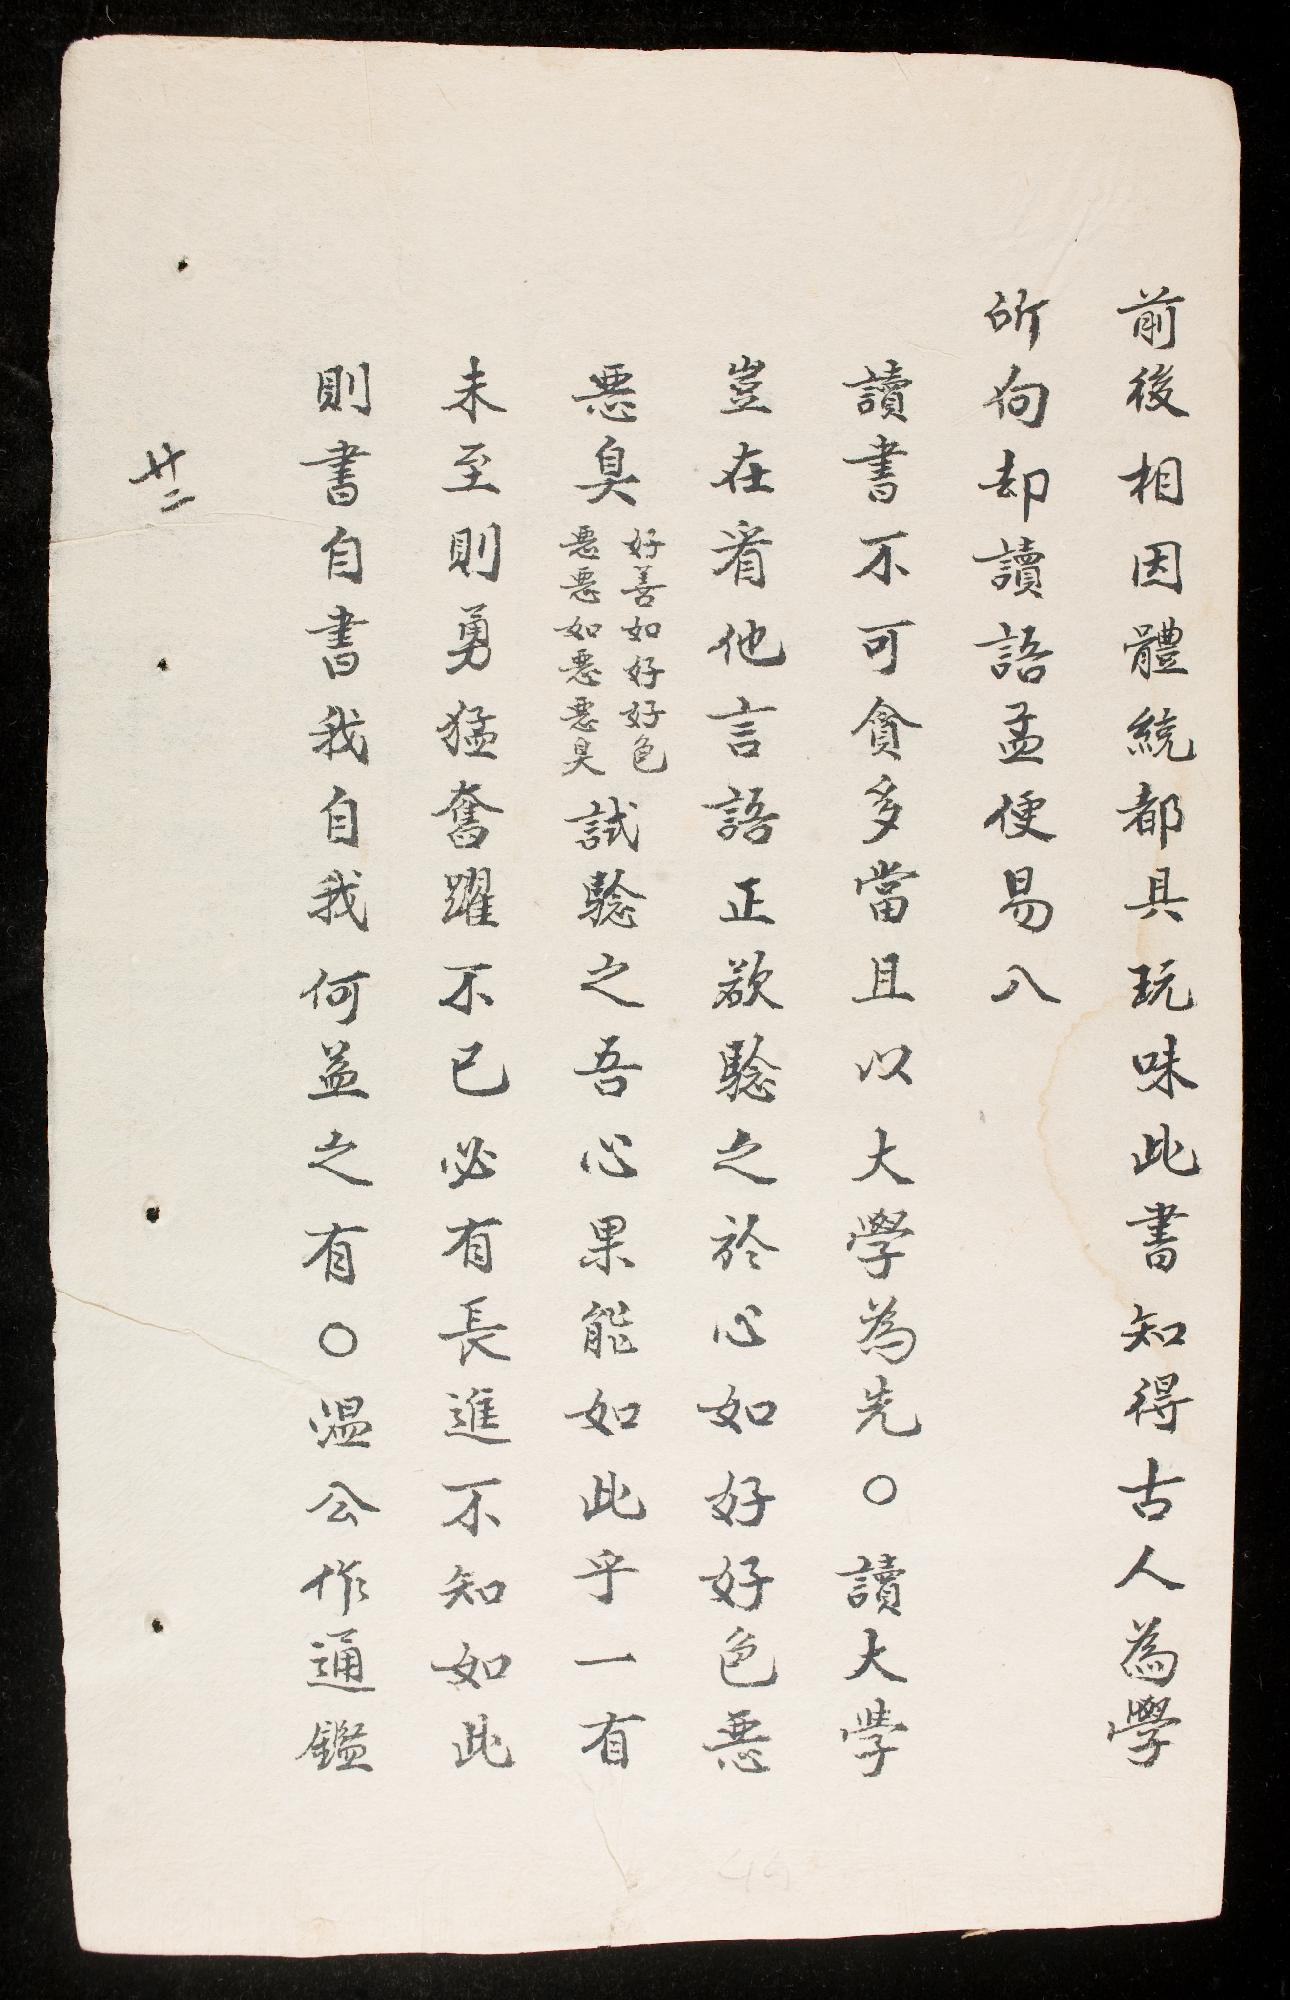 前後相因體統都具玩味此書知得古人為學
所向却讀語孟便易入
讀書不可貪多當且以大學為先○讀大學
豈在看他言語正欲驗之於心如好好色惡
惡臭好善如好好色惡惡如惡惡臭試驗之吾心果能如此乎一有
未至則勇猛奮躍不已必有長進不知如此
則書自書我自我何益之有○溫公作通鑑
廿二